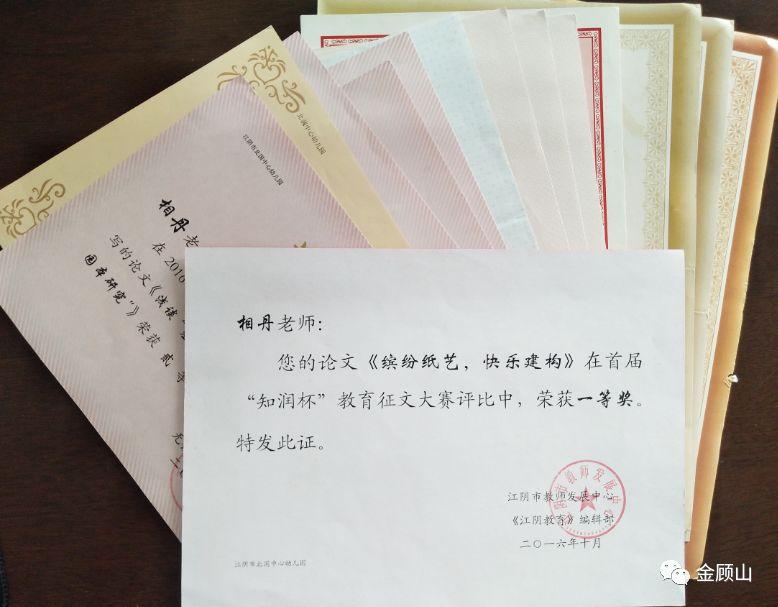 江阴市北国中心幼儿园
北国中心幼儿园
相丹老
在 2016
写的论文《浅谈
园本研究"》荣获贰等
相丹老师：
您的论文《缤纷纸艺，快乐建构》在首届
“知润杯”教育征文大赛评比中，荣获一等奖。
特发此证。
江阴市教师发展中心
江阴市教师发展中心
《江阴教育》编辑部
二〇一六年十月
江阴市北国中心幼儿园
金顾山